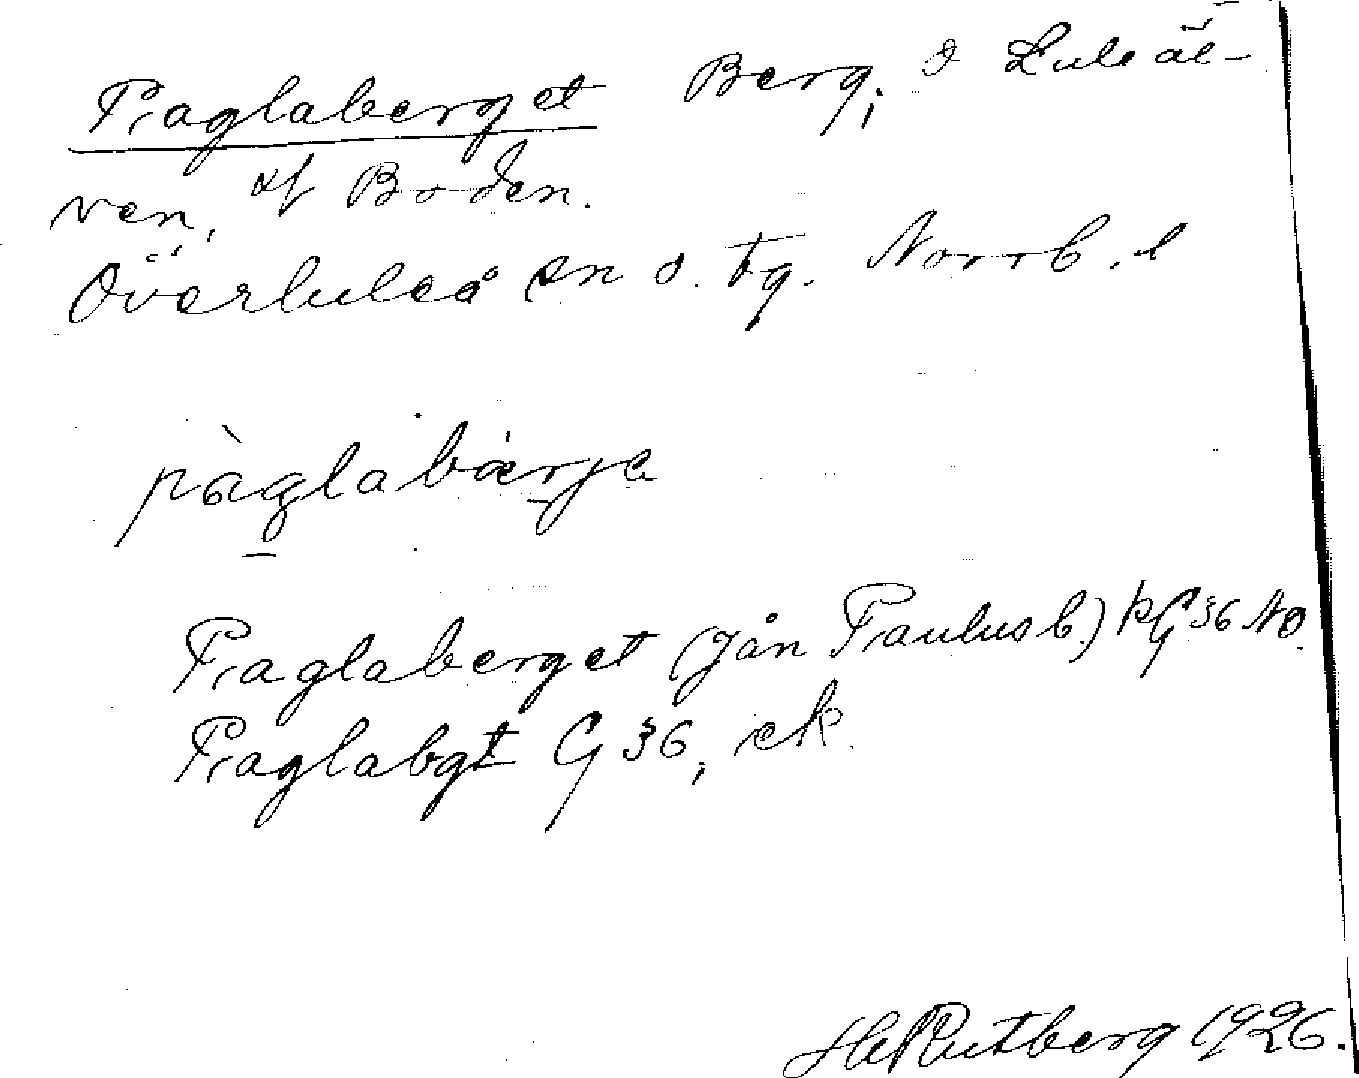 Paglaberget Berg, ö Luleäl-
ven, sf Boden.
Överluleå sn o. tg. Norrb. l
pàglabærje
Paglaberget (jån Paulusb.) kG 36 NO.
Paglabgt G 36, ek.
He Rutberg 1926.